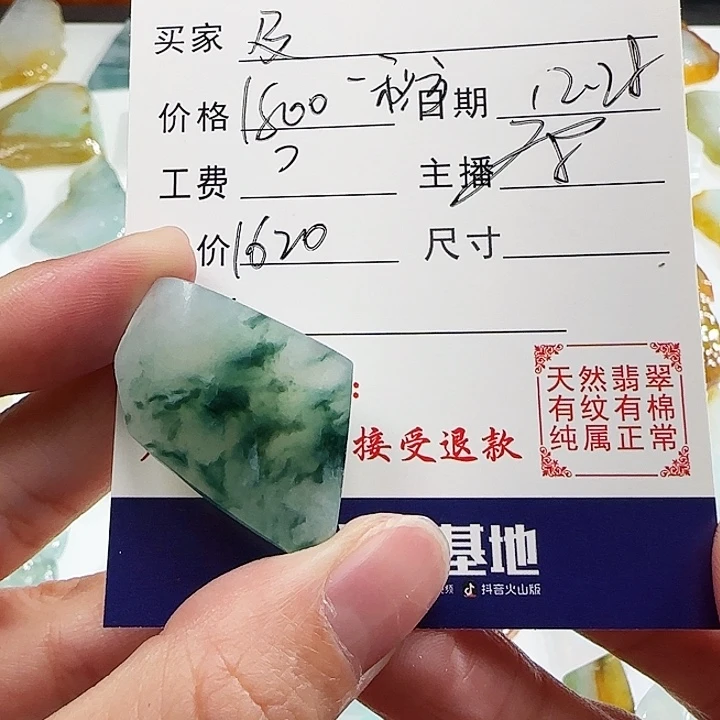 买家 及
价格 1800 一 日期 12.28
工费 主播
价 1620 尺寸
天然翡翠
有纹有棉
纯属正常
接受退款
基地
抖音火山版